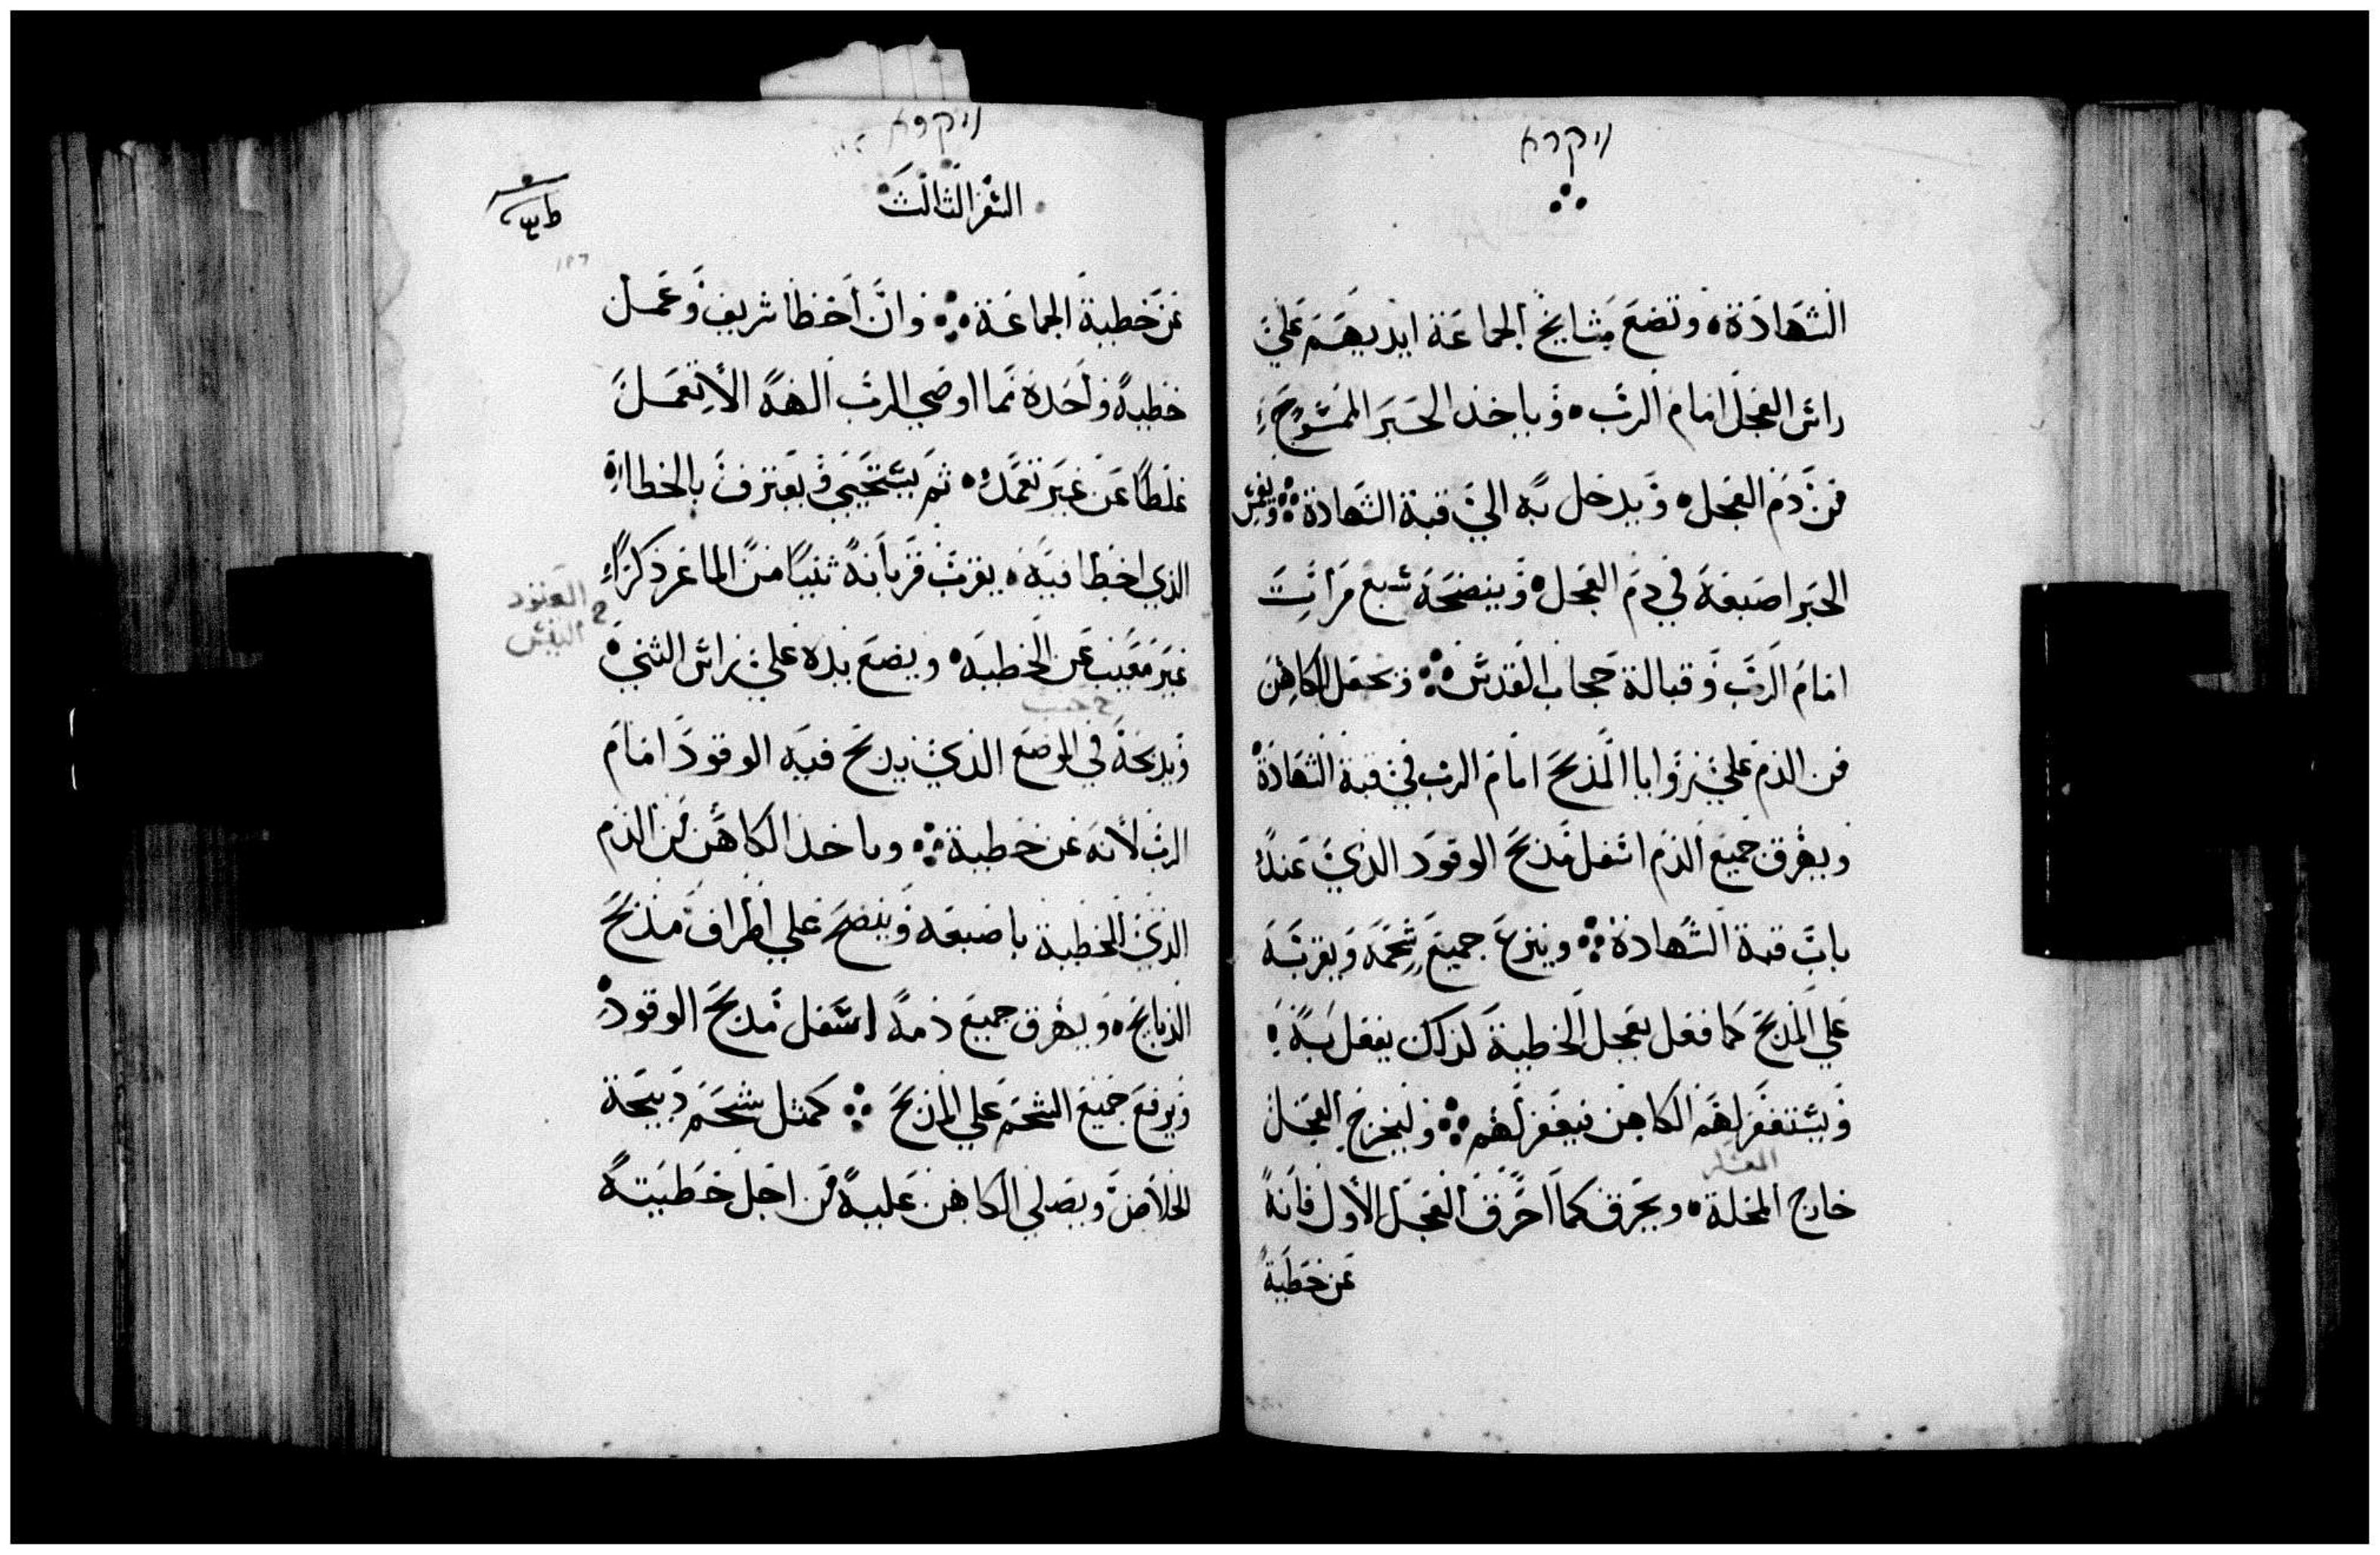 ויקרא
الشهادة، وتضع مشايخ الجماعة ايديهم علي
راس العجل امام الرب ه وياخذ الحبر الممسوح
من دم العجل ه ويدخل به الي قبة الشهادة ۞ ويغمس
الحبر اصبعه في دم العجل ه وينضحه سبع مرات
امام الرب وقبالة حجاب القدس ۞ ويجعل الكاهن
من الدم علي زوايا المذبح امام الرب في قبة الشهادة
ويهرق جميع الدم اسفل مذبح الوقود الذي عند
باب قبة الشهادة ۞ وينزع جميع شحمه ويقربه
علي المذبح كما فعل بعجل الخطية كذلك يفعل به
ويستغفر لهم الكاهن فيغفر لهم ۞ وليخرج العجل
خارج المحلة ه ويحرق كما احرق العجل الأول فانه
عن خطية
ויקרא
السفر الثالث
عن خطية الجماعة ۞ وان أخطا شريف وعمل
خطية واحدة مما اوصي الرب الهه الا تعمل
غلطا عن غير تعمد ه ثم يستحيي ويعترف بالخطااه
الذي اخطا فيه ه يقرب قربانه ثنيا من الماعز ذكراً
غير معيب عن الخطيه ه ويضع يده علي راس الثني
ويذبحه في الموضع الذي يذبح فيه الوقود امام
الرب لأنه عن خطية ۞ وياخذ الكاهن من الدم
الذي للخطية باصبعه وينضح علي اطراف مذبح
الذبايح ه ويهرق جميع دمه اسفل مذبح الوقود
ويرفع جميع الشحم علي المذبح ۞ كمثل شحم ذبيحة
الخلاص ويصلي الكاهن عليه من اجل خطيته